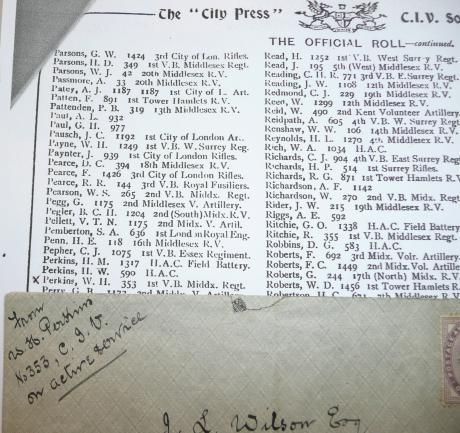 The "City Press"
C.I.V. So
THE OFFICIAL ROLL—continued.
Parsons, G. W. 1424 3rd City of Lon. Rifles.
Parsons, H. D. 349 1st V.B. Middlesex Regt.
Parsons, W. J. 42 20th Middlesex R.V.
Passmore, A. 33 20th Middlesex R.V.
Patey, A. J. 1187 1st City of L. Art.
Patten, F. 891 1st Tower Hamlets R.V.
Pattenden, P. B. 319 13th Middlesex R.V.
Paul, A. L. 932
Paul, G. H. 977
Pausch, J. C. 1192 1st City of London Ar..
Payne, W. H. 1249 1st V.B. W. Surrey Reg.
Paynter, J. 939 1st City of London Rifles.
Pearce, D. C. 394 18th Middlesex R.V.
Pearce, F. 1426 3rd City of London Rifles.
Pearce, R. R. 144 3rd V.B. Royal Fusiliers.
Pearson, W. S. 265 2nd V.B. Middx. Regt.
Pegg, G. 1175 2nd Middlesex V. Artillery.
Pegler, B. C. H. 1204 2nd (South) Mdx. R.V.
Pellett, V. T. N. 1175 2nd Midx. V. Artil.
Pemberton, S. A. 636 1st Lond n Royal Eng.
Penn, H. E. 118 16th Middlesex R.V.
Pepher, C. J. 1075 1st V.B. Essex Regiment.
Perkins, H. M. 1317 H.A.C. Field Battery.
Perkins, H. W. 590 H.A.C.
x Perkins, W. H. 353 1st V.B. Middx. Regt.
Read, H. 1252 1st V.B. West Surr y Regt.
Read, J. 195 5th (West) Middlesex R.V.
Reading, C. H. R. 771 3rd V.B. E. Surrey Regt.
Reading, J. W. 1108 12th Middlesex R.V.
Redmond, C. J. 229 19th Middlesex R.V.
Rees, W. 1299 12th Middlesex R.V.
Reid, W. 490 2nd Kent Volunteer Artillery.
Reidpath, A. 695 4th V.B. W. Surrey Regt.
Renshaw, W. W. 106 14th Middlesex R.V.
Reynolds, H. L. 1270 4th Middlesex R.V.
Rich, W. A. 1034 H.A.C.
Richards, C. J. 904 4th V.B. East Surrey Regt
Richards, H. P. 514 1st Surrey Rifles.
Richards, R. G. 871 1st Tower Hamlets R.V
Richardson, A. F. 1142
Richardson, W. 270 2nd V.B. Mdx. Regt
Rider, J. W. 215 19th Middlesex R.V.
Riggs, A. E. 592
Ritchie, G. O. 1338 H.A.C. Field Battery
Ritchie, R. 355 1st V.B. Middlesex Regt.
Robbins, D. G. 583 H.A.C.
Roberts, F. 692 3rd Middx. Volr. Artillery.
Roberts, F. C. 1449 2nd Midx. Vol. Artiller
Roberts, G. 244 17th (North) Midx. R.V.
Roberts, W. D. 1456 1st Tower Hamlets R.
From
W. H. Perkins
No 353, C.I.V.
on active service
J. L. Wilson Esq